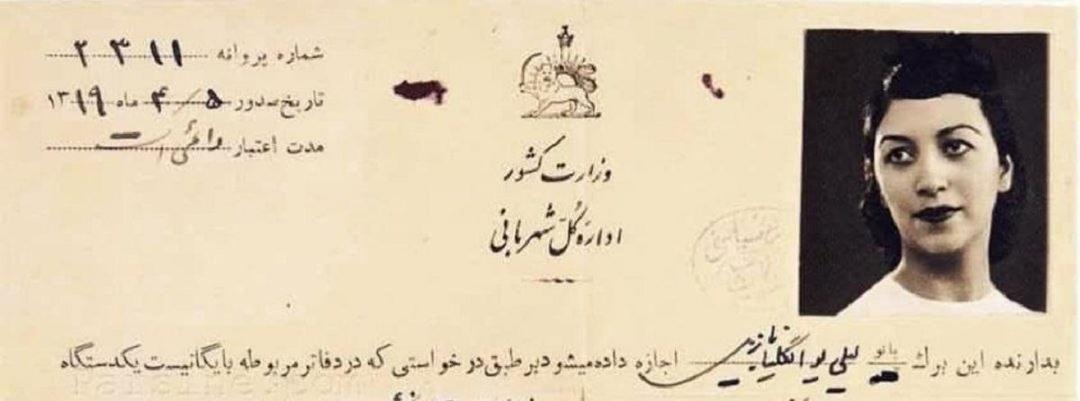 شماره پروانه ۲۳۱۱
تاریخ صدور ۵/۴ ماه ۱۳۱۹
مدت اعتبار دائمی است
وزارت کشور
ادارهٔ کل شهربانی
بدارنده این برك بانو لیلی اجازه داده میشود بر طبق درخواستی که در دفاتر مربوطه بایگانیست یکدستگاه